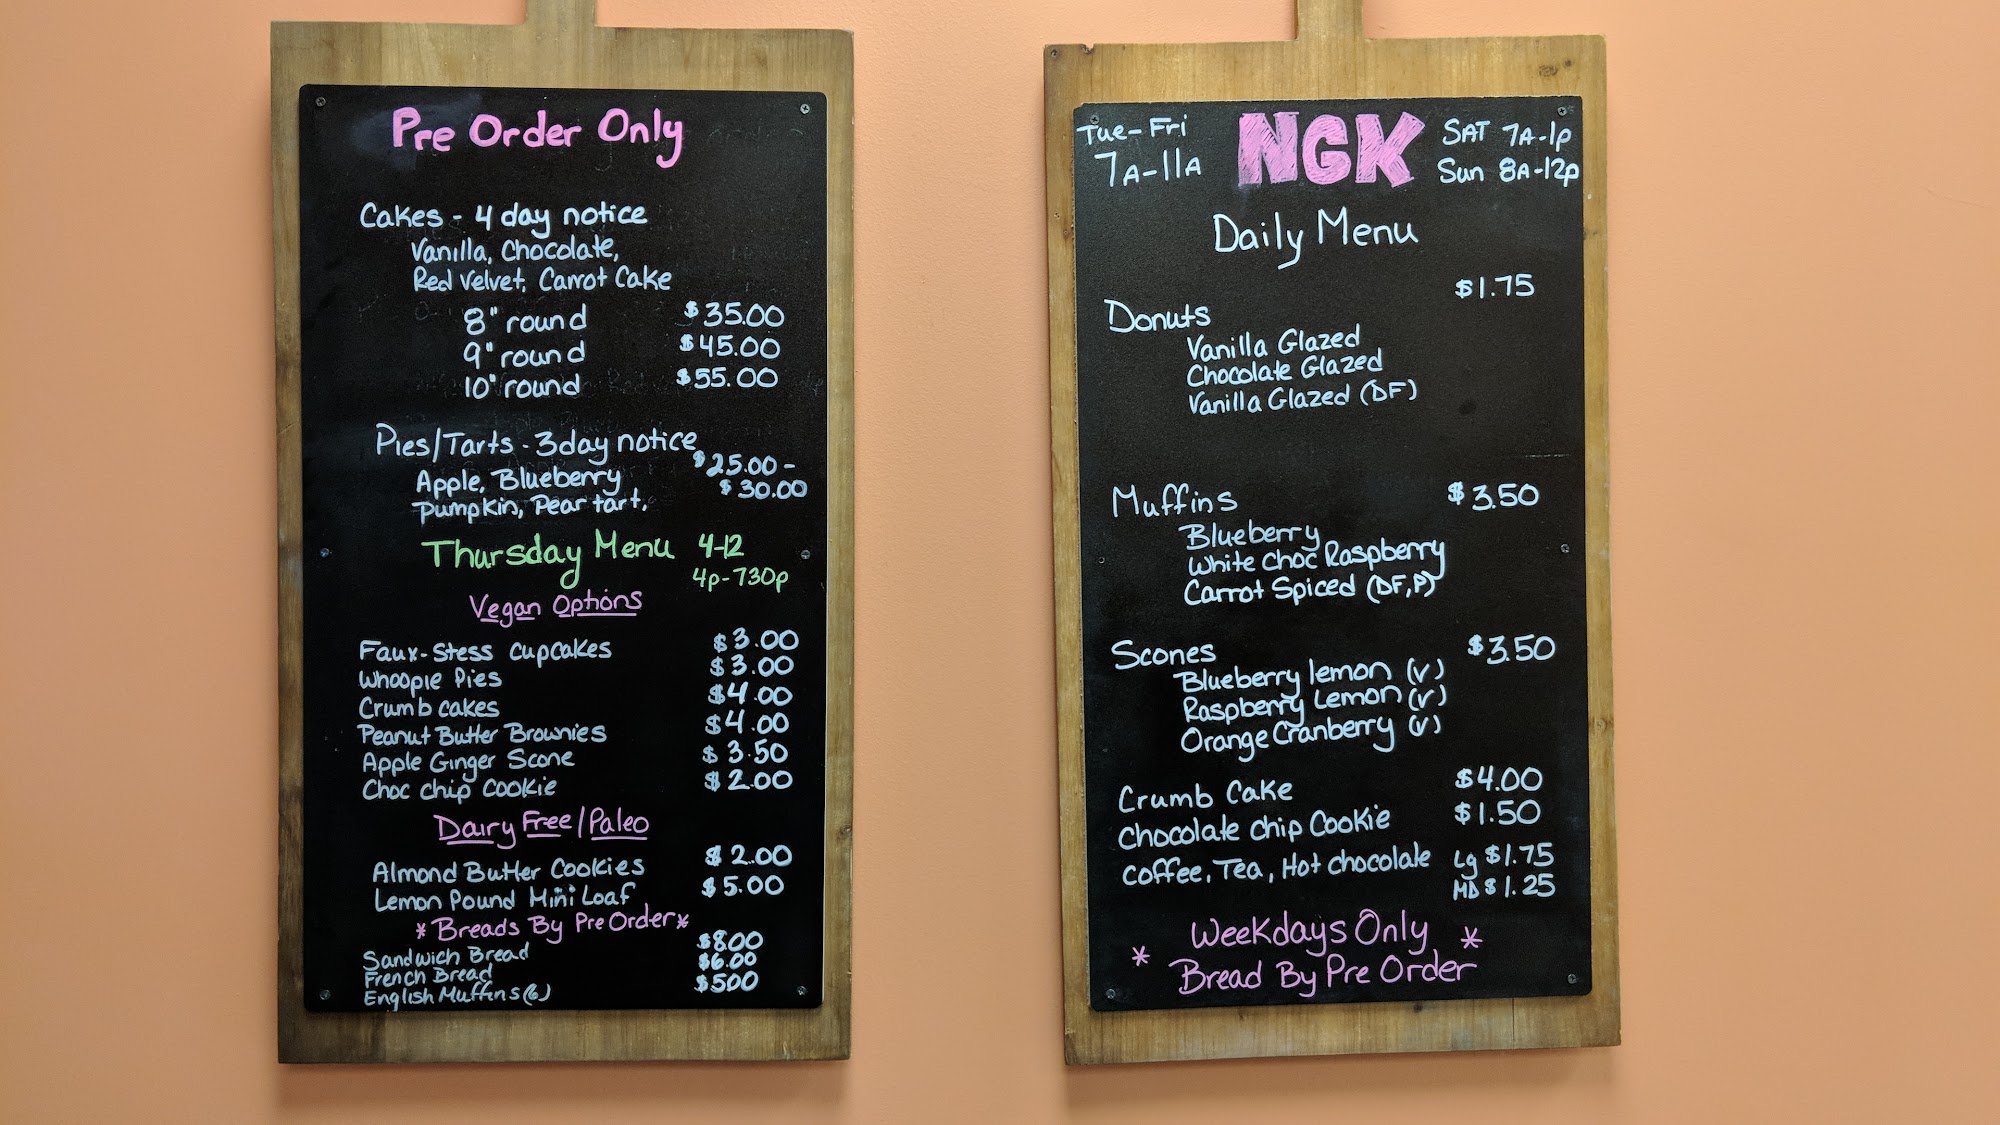 Pre Order Only
Cakes - 4 day notice
Vanilla, Chocolate,
Red Velvet, Carrot Cake
8" round $35.00
9" round $45.00
10" round $55.00
Pies/Tarts - 3 day notice
Apple, Blueberry $25.00 -
Pumpkin, Pear tart, $30.00
Thursday Menu 4-12
4p-730p
Vegan Options
Faux-stess cupcakes $3.00
Whoopie Pies $3.00
Crumb cakes $4.00
Peanut Butter Brownies $4.00
Apple Ginger Scone $3.50
Choc chip Cookie $2.00
Dairy Free/Paleo
Almond Butter Cookies $2.00
Lemon Pound Mini Loaf $5.00
*Breads By Pre Order*
Sandwich Bread $8.00
French Bread $6.00
English Muffins (6) $500
Tue-Fri NGK SAT 7A-1p
7A-11A Sun 8A-12p
Daily Menu
Donuts $1.75
Vanilla Glazed
Chocolate Glazed
Vanilla Glazed (DF)
Muffins $3.50
Blueberry
White choc Raspberry
Carrot Spiced (DF,P)
Scones $3.50
Blueberry lemon (v)
Raspberry Lemon (v)
Orange Cranberry (v)
Crumb Cake $4.00
Chocolate Chip Cookie $1.50
Coffee, Tea, Hot chocolate Lg $1.75
MD $1.25
* Weekdays Only *
Bread By Pre Order